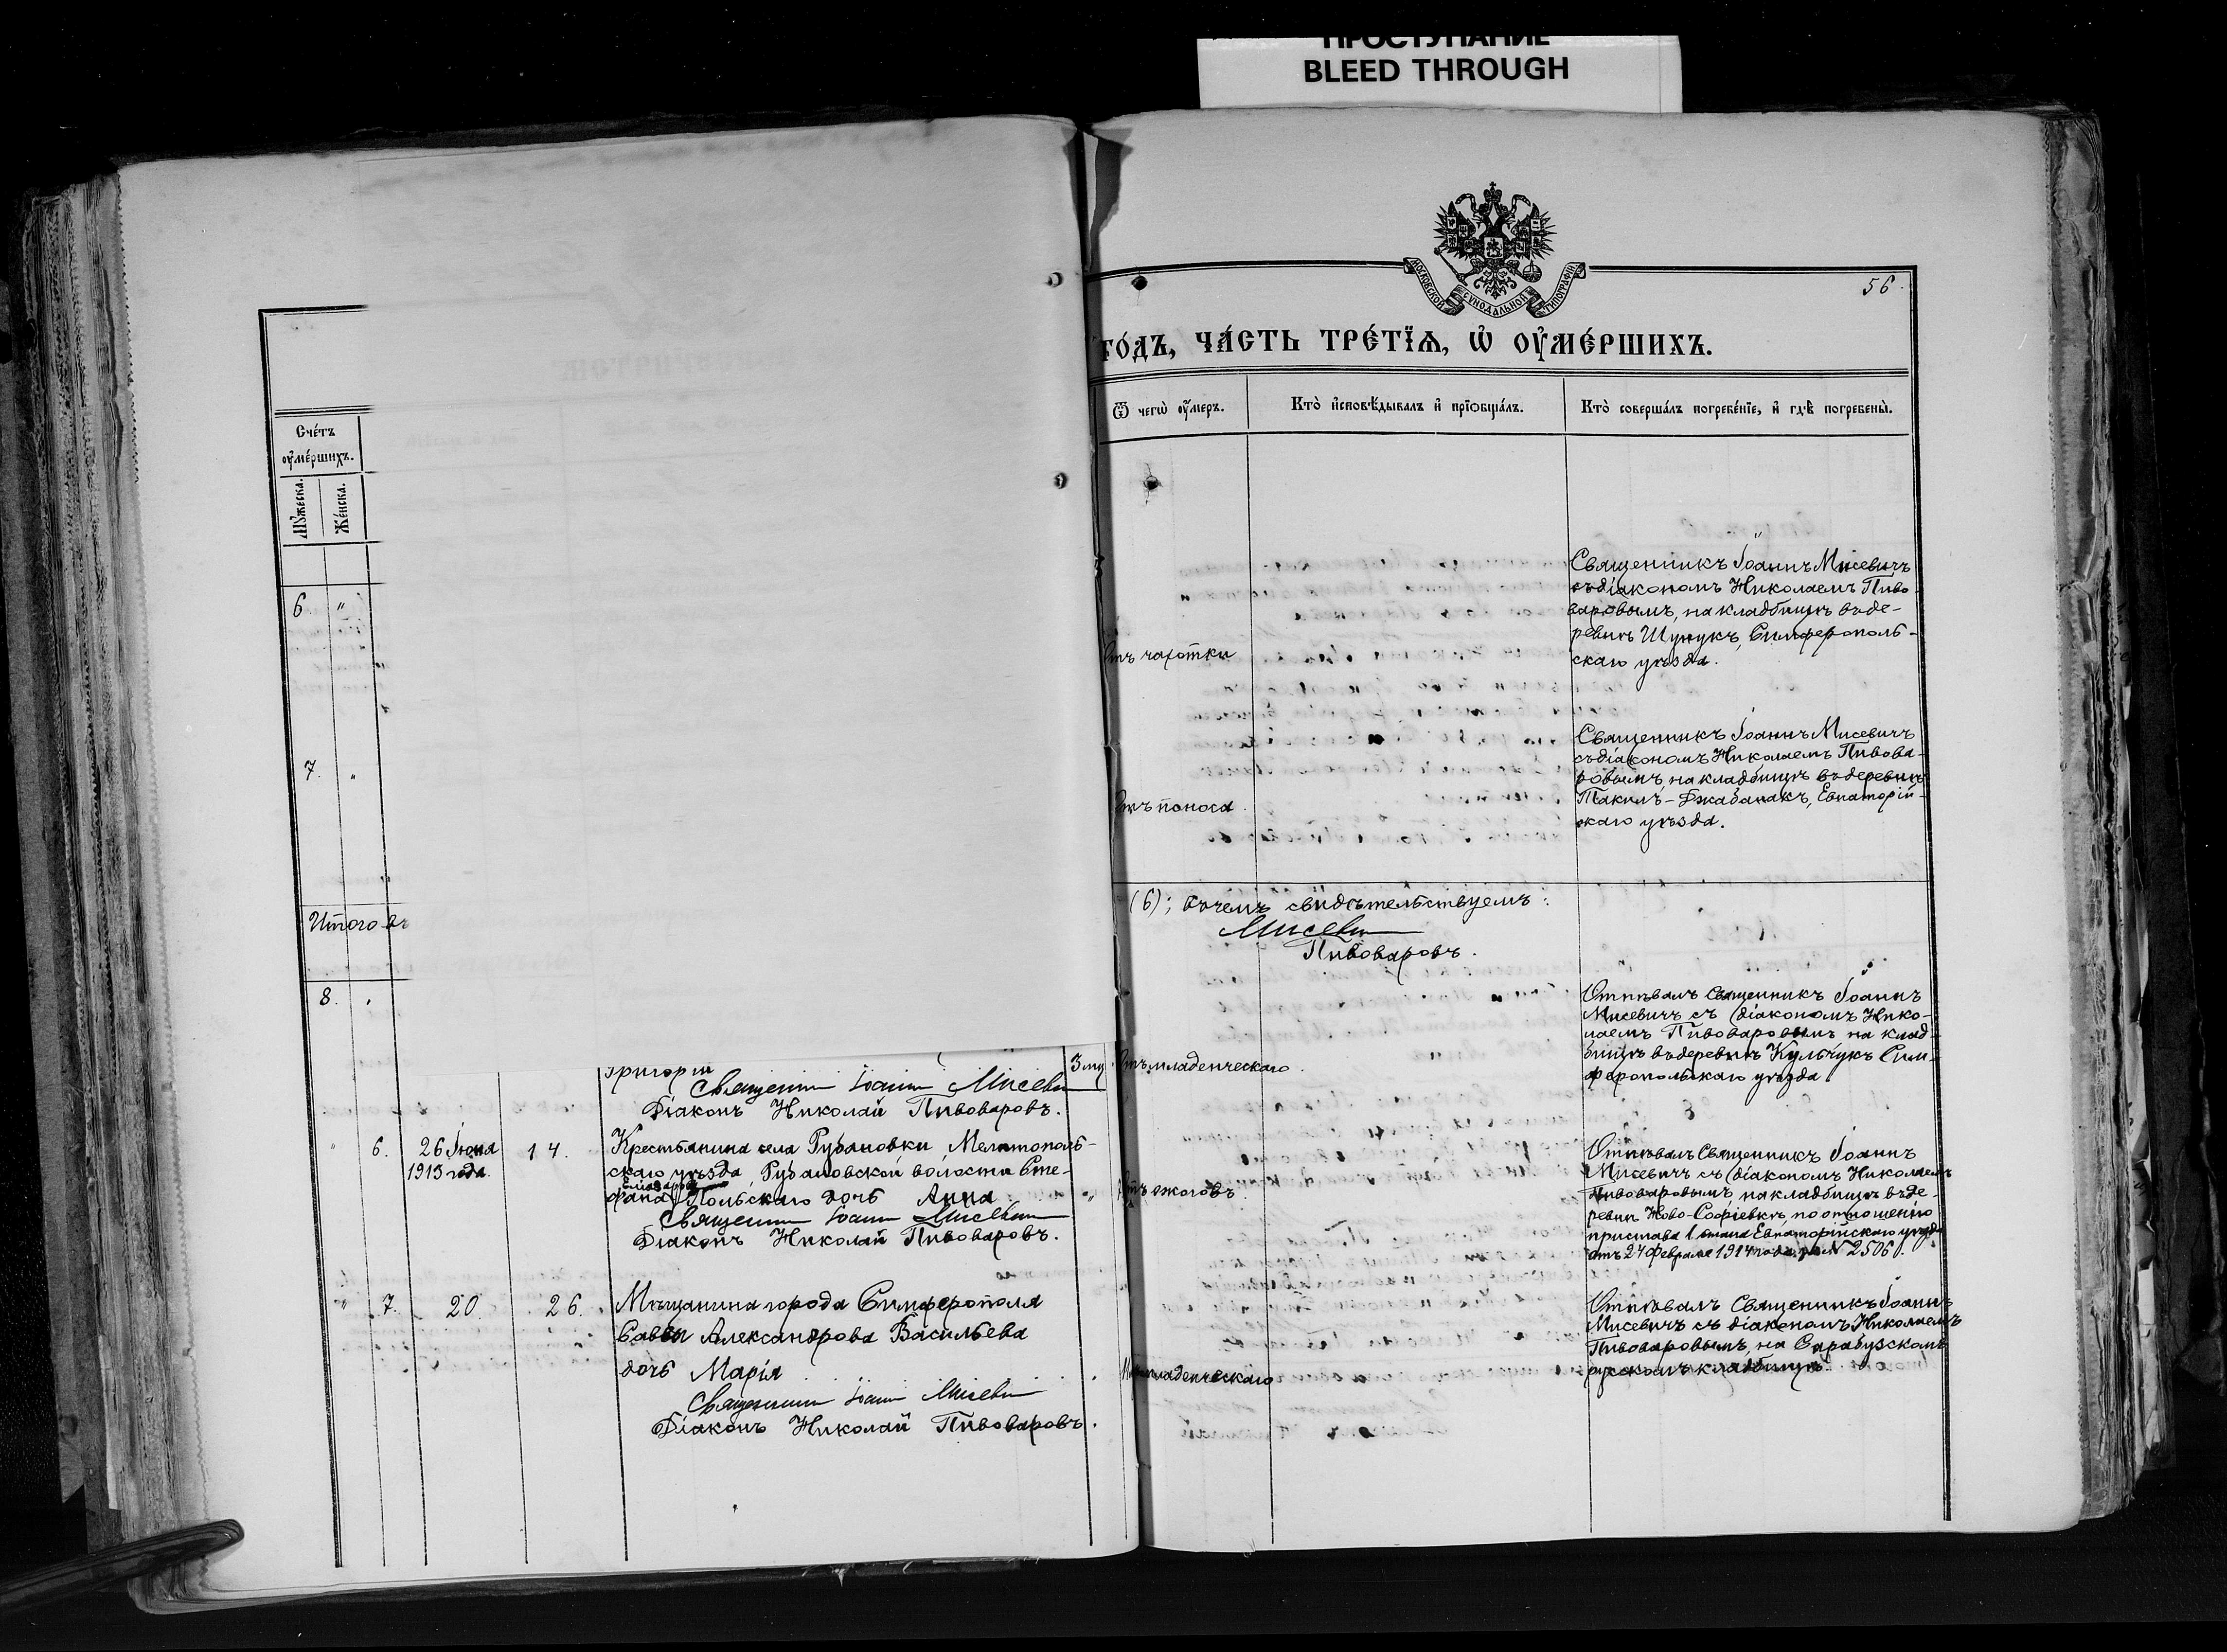 ПРОСТУПАНИЕ
BLEED THROUGH
МОСКОВСКОЙ СѴНОДАЛЬНОЙ ТИПОГРАФІИ
56.
го́дъ, ча́сть тре́тїѧ, ѡ҆ ᲂу҆ме́ршихъ.
Сче́тъ
ᲂу҆ме́ршихъ.
Мꙋ́жеска.
Же́нска.
Ѿ чегѡ̀ ᲂу҆́меръ.
Кто̀ и҆сповѣ́дывалъ и҆ прїѡбща́лъ.
Кто̀ соверша́лъ погребе́нїе, и҆ гдѣ̀ погребены̀.
6. "
Отъ чахотки
Священникъ Іоаннъ Мисевичъ
съ діакономъ Николаемъ Пиво-
варовымъ, на кладбищѣ въ де-
ревнѣ Шунукъ, Симферополь-
скаго уѣзда.
7. "
Отъ поноса.
Священникъ Іоаннъ Мисевичъ
съ діакономъ Николаемъ Пивова-
ровымъ, на кладбищѣ въ деревнѣ
Такилъ-Джабанакъ, Евпаторій-
скаго уѣзда.
Итого въ
(6); въ чемъ свидѣтельствуемъ:
Мисевичъ
Пивоваровъ.
8. "
Григорій
Священникъ Іоаннъ Мисевичъ
Діаконъ Николай Пивоваровъ.
Отъ младенческаго.
Отпѣвалъ Священникъ Іоаннъ
Мисевичъ съ діакономъ Нико-
лаемъ Пивоваровымъ на клад-
бищѣ въ деревнѣ Кульчукъ Сим-
феропольскаго уѣзда.
" 6. 26 Іюня 14.
1913 года.
Крестьянина села Рубановки Мелитополь-
скаго уѣзда Рубановской волости Сте-
фана Польскаго дочь Анна
Священникъ Іоаннъ Мисевичъ
Діаконъ Николай Пивоваровъ.
Отъ ожоговъ.
Отпѣвалъ Священникъ Іоаннъ
Мисевичъ съ діакономъ Николаемъ
Пивоваровымъ, на кладбищѣ въ де-
ревнѣ Ново-Софіевкѣ, по отношенію
пристава 1 стана Евпаторійскаго уѣзда
отъ 24 Февраля 1914 года за № 2506.
" 7. 20. 26.
Мѣщанина города Симферополя
Саввы Александрова Васильева
дочь Марія
Священникъ Іоаннъ Мисевичъ
Діаконъ Николай Пивоваровъ.
младенческаго
Отпѣвалъ Священникъ Іоаннъ
Мисевичъ съ діакономъ Николаемъ
Пивоваровымъ, на Сарабузскомъ
русскомъ кладбищѣ.